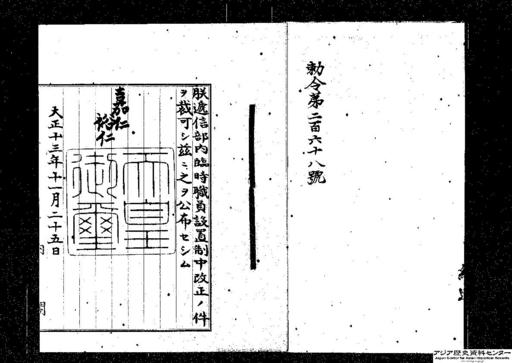 勅令第二百六十八號
朕遞信部內臨時職員設置制中改正ノ件
ヲ裁可シ茲ニ之ヲ公布セシム
嘉仁
裕仁
天皇御璽
大正十三年十一月二十五日
内閣
アジア歴史資料センター
Japan Center for Asian Historical Records